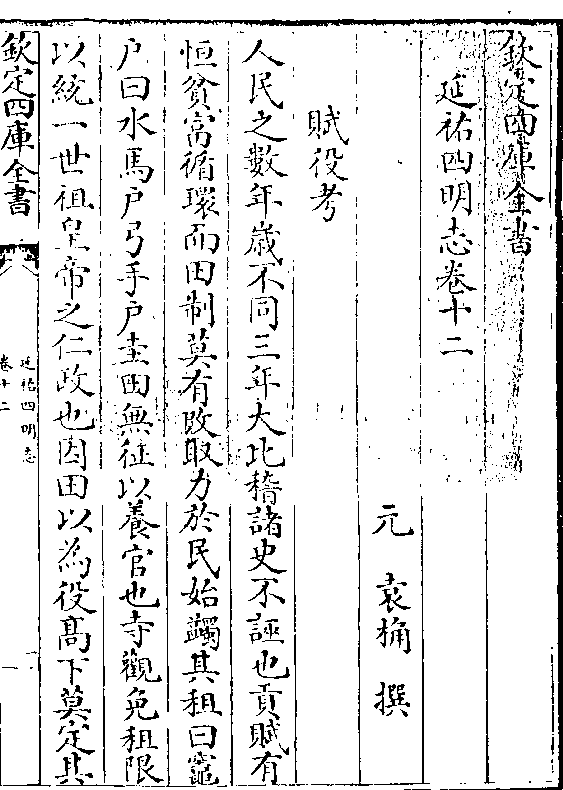 欽定四庫全書
延祐四明志卷十二
元 袁桷 撰
賦役考
人民之數年歲不同三年大比稽諸史不誣也貢賦有
恒貧富循環而田制莫有改取力於民始蠲其租曰竈
户曰水馬户弓手户圭田無征以養官也寺觀免租限
以統一世祖皇帝之仁政也因田以為役髙下莫定其
欽定四庫全書
延祐四明志
卷十二
一